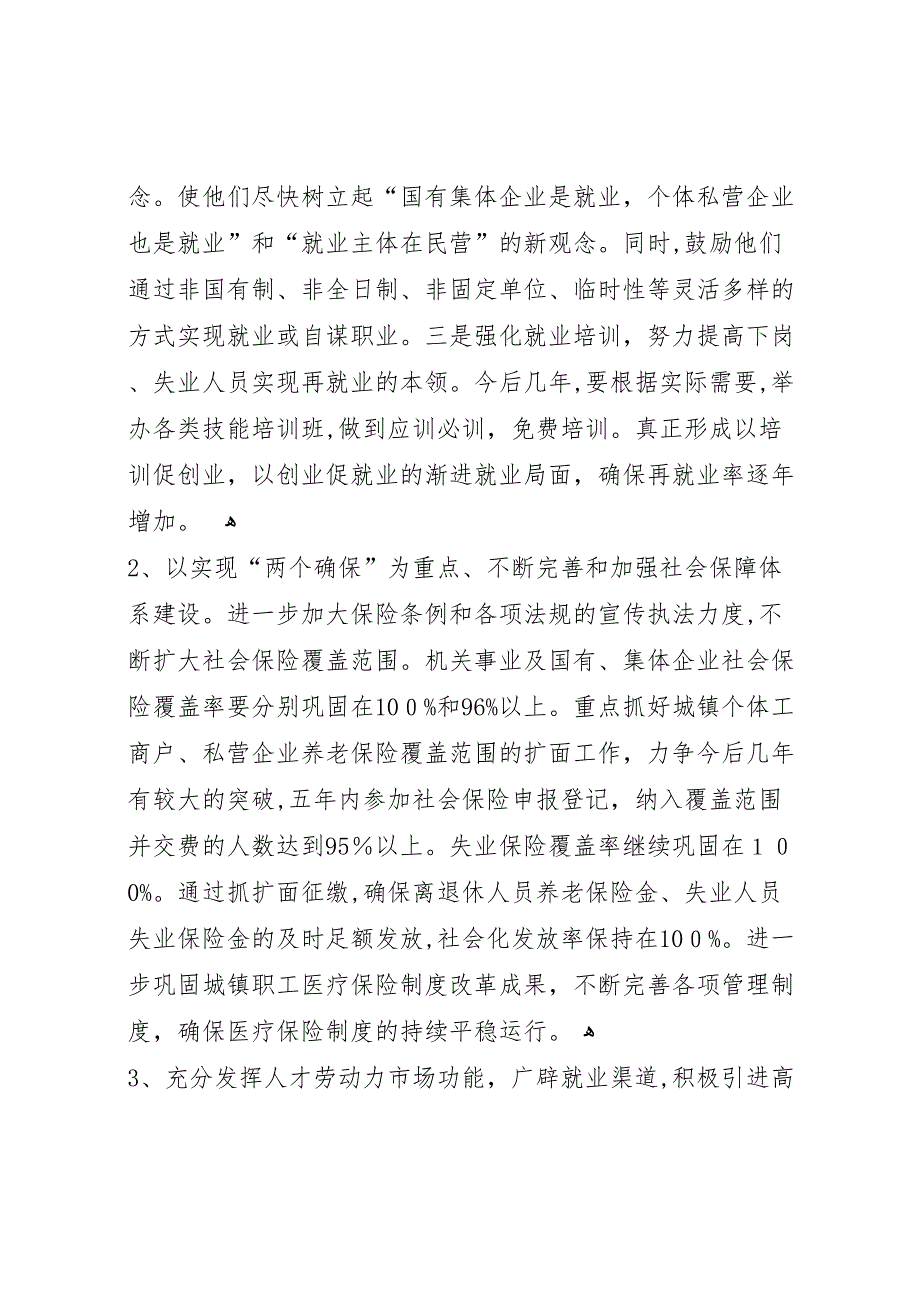 念。使他们尽快树立起“国有集体企业是就业，个体私营企业
也是就业”和“就业主体在民营”的新观念。同时,鼓励他们
通过非国有制、非全日制、非固定单位、临时性等灵活多样的
方式实现就业或自谋职业。三是强化就业培训，努力提高下岗
、失业人员实现再就业的本领。今后几年,要根据实际需要,举
办各类技能培训班,做到应训必训，免费培训。真正形成以培
训促创业，以创业促就业的渐进就业局面，确保再就业率逐年
增加。 ﻫ
2、以实现“两个确保”为重点、不断完善和加强社会保障体
系建设。进一步加大保险条例和各项法规的宣传执法力度,不
断扩大社会保险覆盖范围。机关事业及国有、集体企业社会保
险覆盖率要分别巩固在10０%和96%以上。重点抓好城镇个体工
商户、私营企业养老保险覆盖范围的扩面工作，力争今后几年
有较大的突破,五年内参加社会保险申报登记，纳入覆盖范围
并交费的人数达到95％以上。失业保险覆盖率继续巩固在１０
0%。通过抓扩面征缴,确保离退休人员养老保险金、失业人员
失业保险金的及时足额发放,社会化发放率保持在10０%。进一
步巩固城镇职工医疗保险制度改革成果，不断完善各项管理制
度，确保医疗保险制度的持续平稳运行。 ﻫ
3、充分发挥人才劳动力市场功能，广辟就业渠道,积极引进高